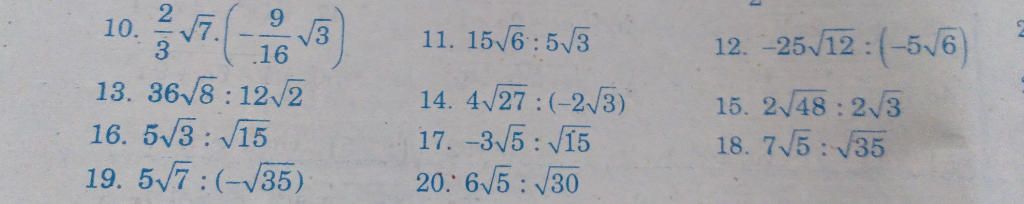 10. 2/3 √7 . (−9/16 √3) 11. 15√6 : 5√3 12. −25√12 : (−5√6)
13. 36√8 : 12√2 14. 4√27 : (−2√3) 15. 2√48 : 2√3
16. 5√3 : √15 17. −3√5 : √15 18. 7√5 : √35
19. 5√7 : (−√35) 20. 6√5 : √30